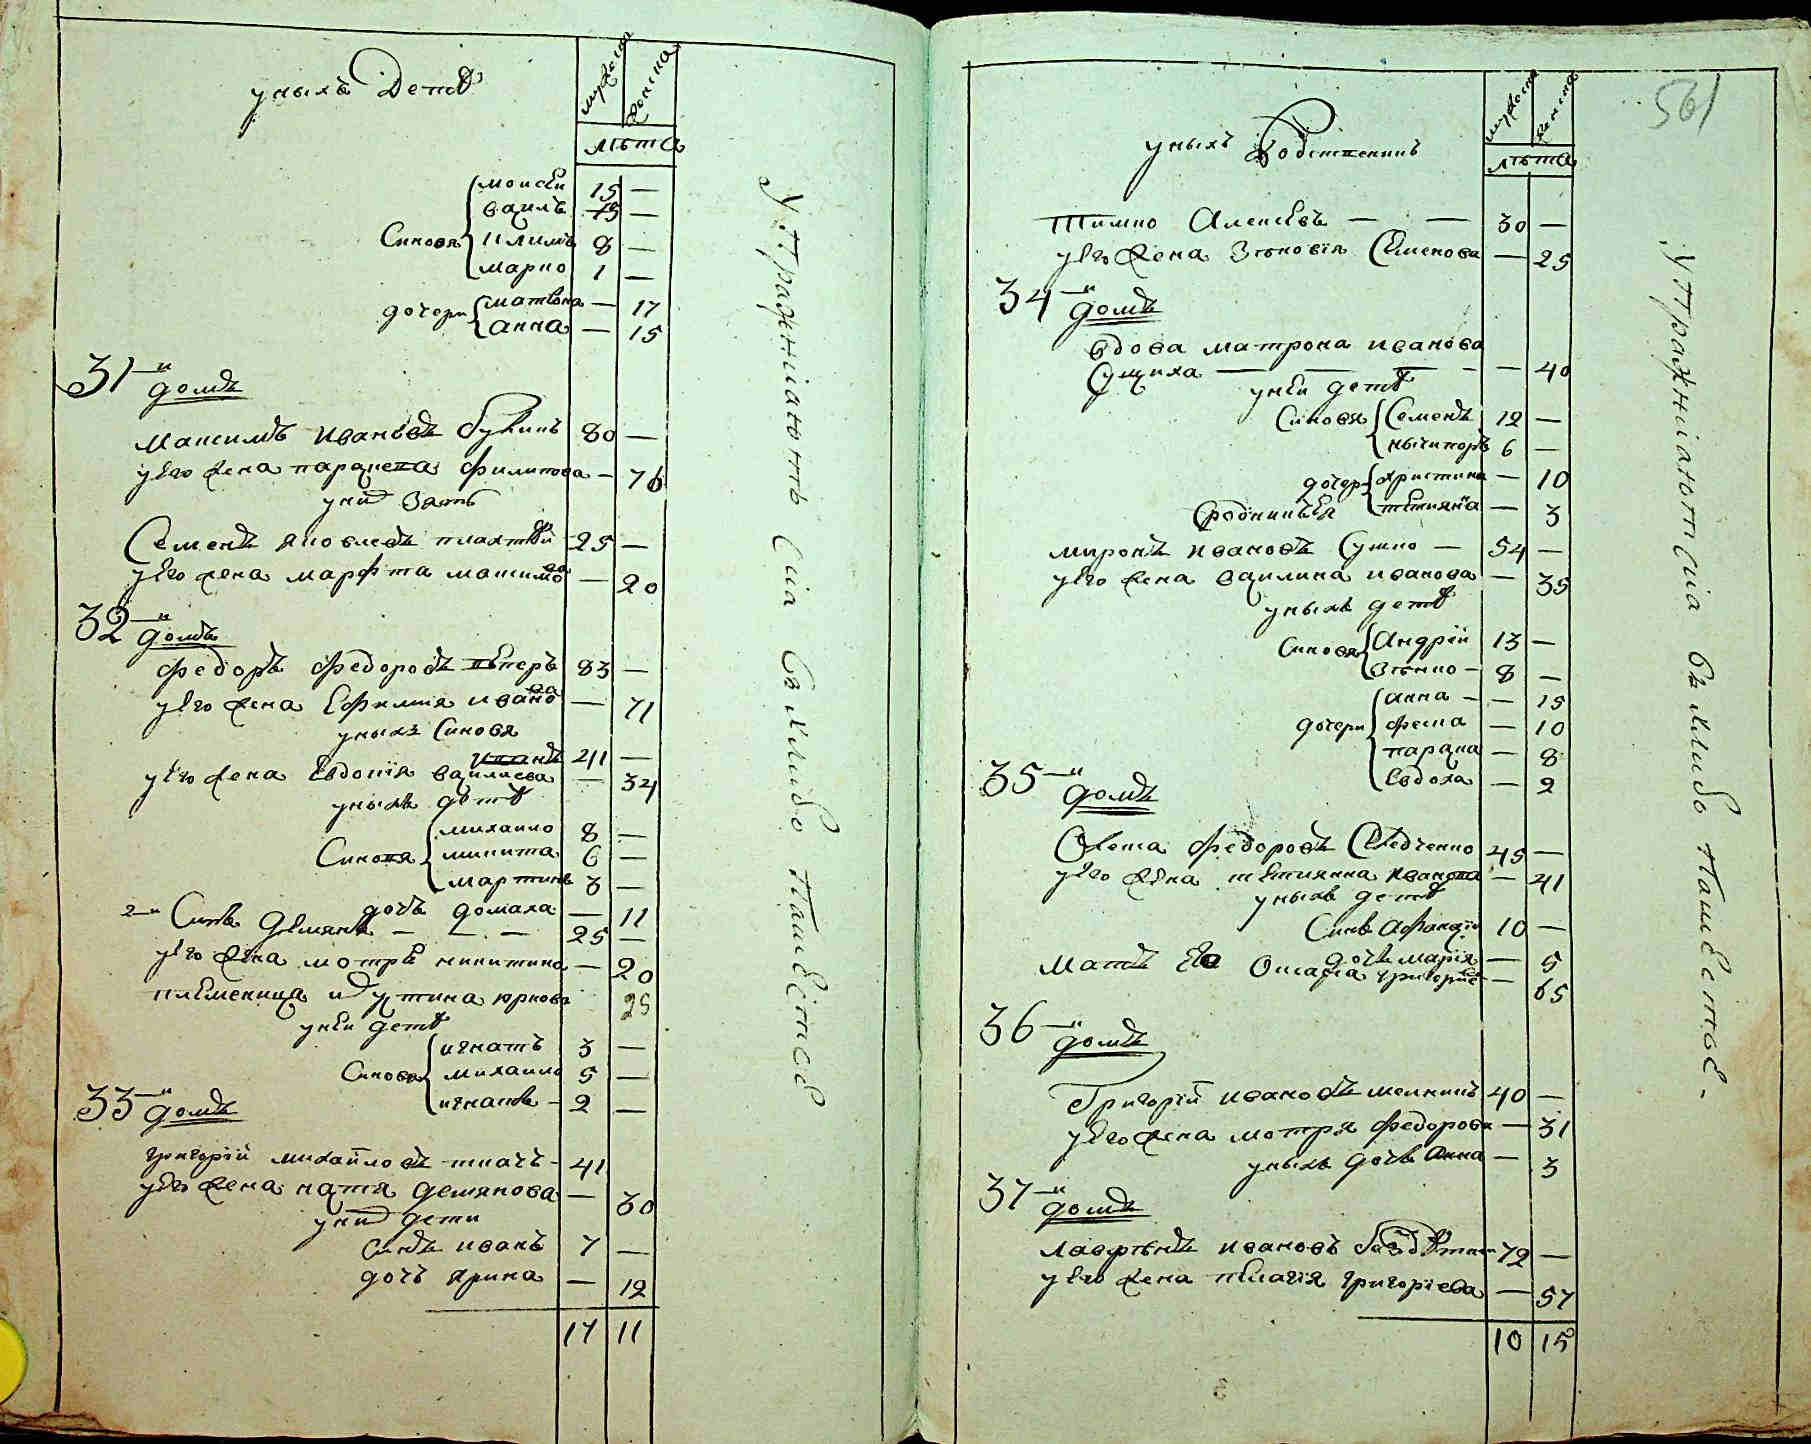 у ныхъ Дети
мужеска
женска
лѣта
Синовя
моисей 15 —
василь 13 —
климъ 8 —
марко 1 —
дочери
матвона — 17
анна — 15
31-й домъ
максимъ ивановъ букинъ 80 —
у его жена параскева филипова — 76
у ний зять
Семенъ яковлевъ плахтѣй 25 —
у его жена марфта максимова — 20
32-й домъ
федоръ федоровъ кѣперъ 83 —
у его жена Ефимия иванова — 71
у ныхъ Синовя
иванъ 41 —
у его жена Евдокiя василиева — 34
у ныхъ дети
Синовя
михаило 8 —
микита 6 —
мартинъ 3 —
дочъ домаха — 11
2-й Синъ Демянъ — — — 25 —
у его жена мотря никитина — 20
племеница Юркова 25
у ней дети
Синовя
игнатъ 3 —
михаило 5 —
игнатъ — 2 —
33-й домъ
григорiй михайловъ ткачъ — 41
у его жена катя демянова — 30
у ний дети
синъ иванъ 7 —
дочъ ярина — 12
17 11
Упражнiаютъ сiа въ хлибо пашествѣ
561
у ныхъ Родственникъ
мужеска
женска
лѣта
Тимко Алексѣевъ — — 30 —
у его жена Зѣновiя Семенова — 25
34-й домъ
вдова матрона иванова
Сущиха — — — — 40
у ней дети
Синовя
Семенъ 12 —
ничипоръ 6 —
дочери
христина — 10
тетияна — 3
Сродникъ Ея
миронъ ивановъ Сушко — 54 —
у его жена василина иванова — 35
у ныхъ дети
Синовя
Андрiй 13 —
Зѣнко — 8 —
дочери
анна — — 15
феша — 10
параска — 8
Евдоха — 2
35-й домъ
федоровъ 45 —
у его жена тетиянна иванова — 41
у ныхъ дети
Синъ Афанасiй 10 —
дочъ марiя — 5
Мать Его григориева — 65
36-й домъ
Григорiй ивановъ мелникъ 40 —
у его жена мотря федорова — 31
у ныхъ дочъ Анна — 3
37-й домъ
лаврѣнъ ивановъ 72 —
у его жена пелагiя григорiева — 57
10 15
Упражнiаютсiа въ хлибо пашествѣ.